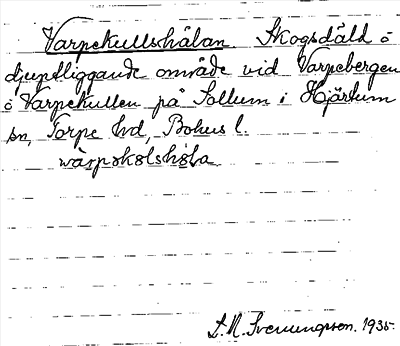 Varpekullshålan Skogsdäld o
djuptliggande område vid Varpebergen
o Varpekullen på Sollum i Hjärtum
sn, Torpe hd, Bohus l.
wàrpəkəlshə̀la
S. N. Svenungsson. 1935.